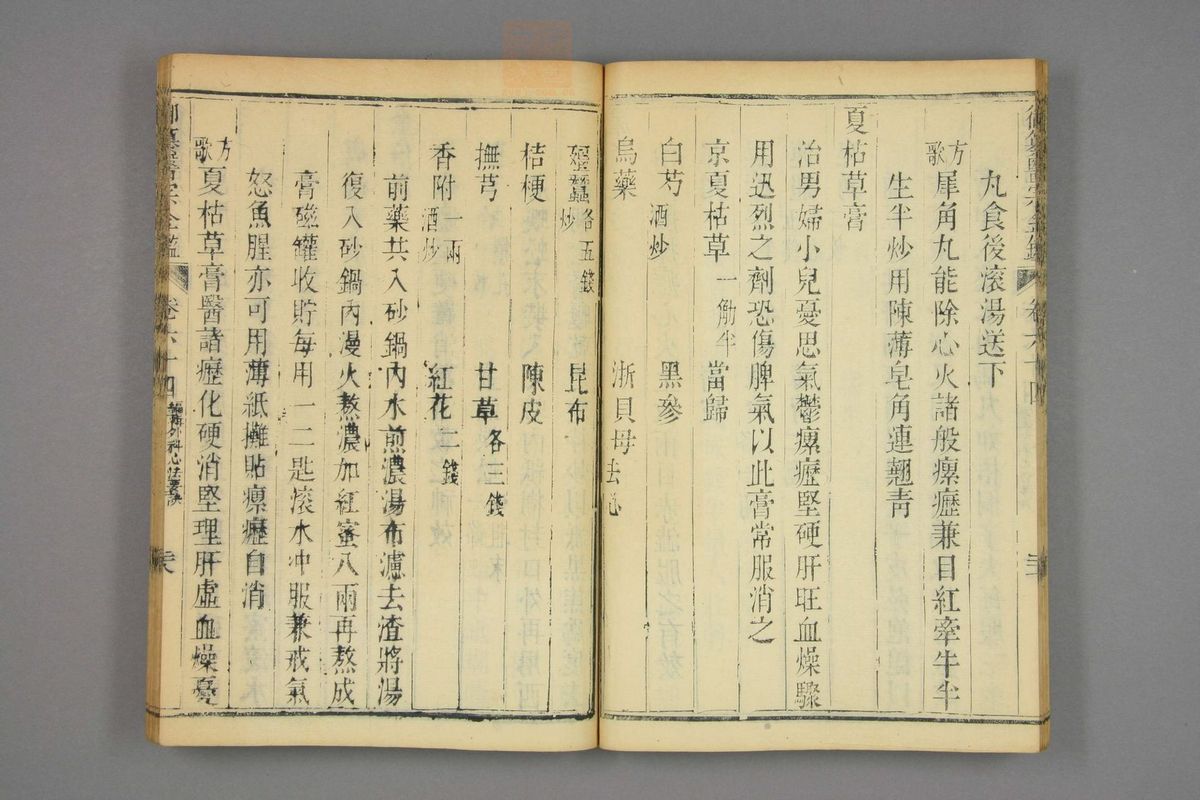 丸食後滾湯送下
方歌犀角丸能除心火諸般瘰癧兼目紅牽牛半
生半炒用陳薄皂角連翹青
夏枯草膏
治男婦小兒憂思氣鬱瘰癧堅硬肝旺血燥驟
用迅烈之劑恐傷脾氣以此膏常服消之
京夏枯草 一觔半 當歸
白芍 酒炒 黑參
烏藥 浙貝母 去心
殭蠶 各五錢炒 昆布
桔梗 陳皮
撫芎 甘草 各三錢
香附 一兩酒炒 紅花 二錢
前藥共入砂鍋內水煎濃湯布濾去渣將湯
復入砂鍋內漫火熬濃加紅蜜八兩再熬成
膏磁罐收貯每用一二匙滾水冲服兼戒氣
怒魚腥亦可用薄紙攤貼瘰癧自消
方歌夏枯草膏醫諸癧化硬消堅理肝虛血燥憂
御纂醫宗金鑑 卷六十四 編輯外科心法要訣